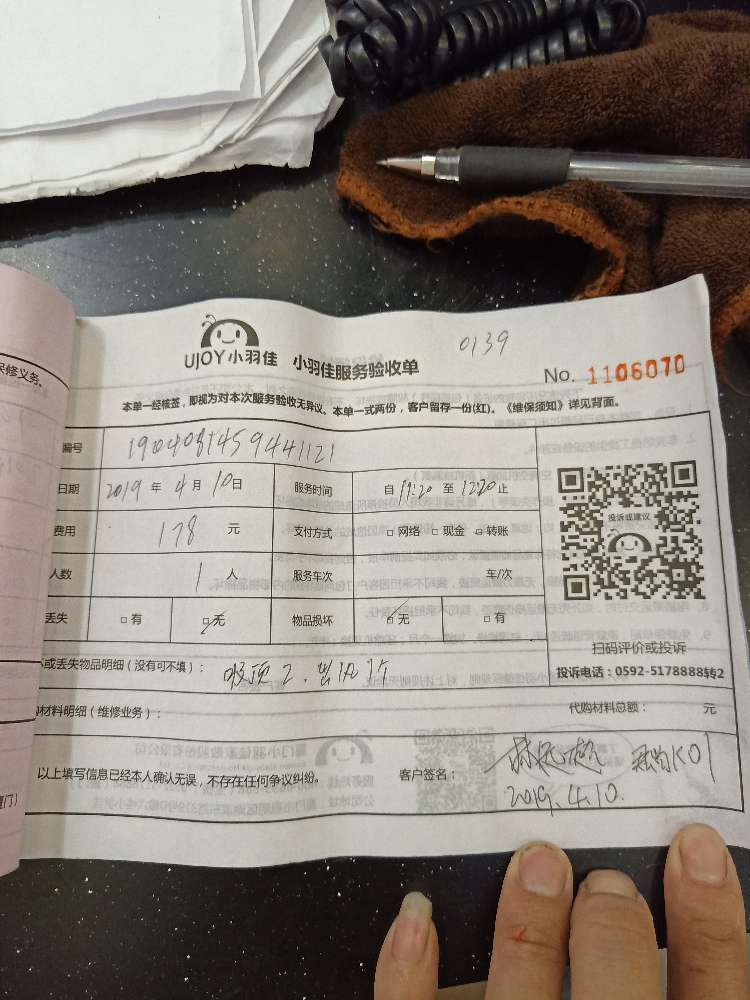 保修义务、
0139
UJOY小羽佳 小羽佳服务验收单
No. 1106070
本单一经核签，即视为对本次服务验收无异议。本单一式两份，客户留存一份(红)。《维保须知》详见背面。
编号
日期 2019 年 4 月 10 日 服务时间 自 11:20 至 1220 止
费用 178 元 支付方式 □ 网络 □ 现金 □ 转账
投诉或建议
人数 1 人 服务车次 车/次
丢失 □ 有 □ 无 物品损坏 □ 无 □ 有
扫码评价或投诉
投诉电话：0592-5178888转2
或丢失物品明细（没有可不填）：
材料明细（维修业务）： 代购材料总额： 元
以上填写信息已经本人确认无误，不存在任何争议纠纷。 客户签名：
2019.4.10.